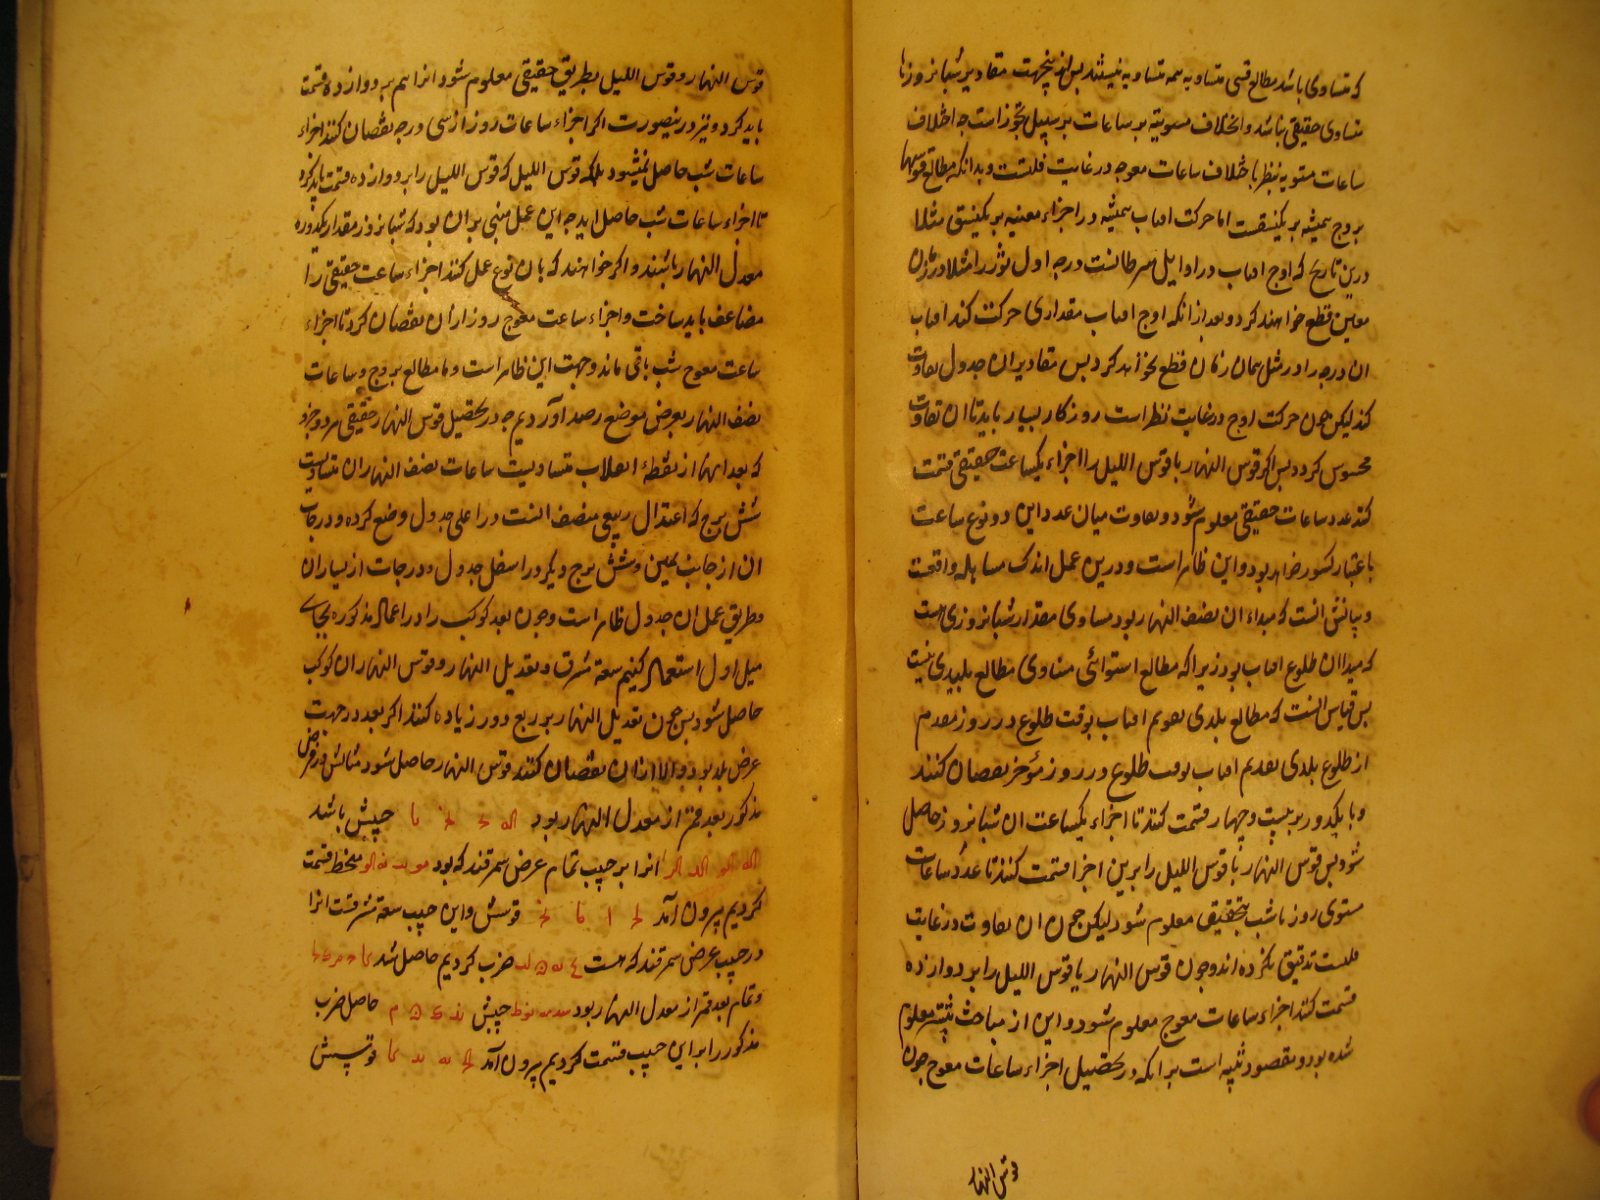 که متساوی باشد مطالع قسی متساویه همه متساویه نیستند پس ازین جهت مقادیر شبانروزها
متساوی حقیقی نباشد و اختلاف مستویه بر ساعات بر سبیل تجوز است چه اختلاف
ساعات مستویه بنظر با اختلاف ساعات معوجه در غایت قلتست و بدانکه مطالع قوسهای
بروج همیشه بر یکنسقست اما حرکت افتاب همیشه در اجزاء معینه بر یکنسق مثلا
درین تاریخ که اوج افتاب در اوایل سرطانست درجه اول ثور را مثلا در زمان
معین قطع خواهند کرد و بعد از انکه اوج افتاب مقداری حرکت کند افتاب
ان درجه را در مثل همان زمان قطع نخواهد کرد پس مقادیر ان جدول تفاوت
کند لیکن چون حرکت اوج در غایت بطؤ است روزکار بسیار باید تا ان تفاوت
محسوس کردد پس اکر قوس النهار یا قوس اللیل را اجزاء یکساعت حقیقی قسمت
کنند عدد ساعات حقیقی معلوم شود و تفاوت میان عدد این دو نوع ساعت
باعتبار کسور خواهد بود و این ظاهر است و درین عمل اندک مساهله واقعست
و بیانش انست که مبداء ان نصف النهار بود مساوی مقدار شبانروزی هست
که مبدا ان طلوع افتاب بود زیراکه مطالع استوائی مساوی مطالع بلدی نیست
پس قیاس انست که مطالع بلدی تقویم افتاب بوقت طلوع در روز مقدم
از طلوع بلدی تقدیم افتاب بوقت طلوع در روز مؤخر نقصان کنند
و با یکدور بر بیست و چهار قسمت کنند تا اجزاء یکساعت ان شبانروز حاصل
شود پس قوس النهار یا قوس اللیل را برین اجزا قسمت کنند تا عدد ساعات
مستوی روز یا شب بتحقیقی معلوم شود لیکن چون ان تفاوت در غایت
قلت است تدقیق نکرده اند و چون قوس النهار یا قوس اللیل را بر دوازده
قسمت کنند اجزاء ساعات معوج معلوم شود و این از مباحث پیشتر معلوم
شده بود و مقصود تنبیه است برانکه در تحصیل اجزاء ساعات معوج چون
قوس النهار
قوس النهار و قوس اللیل بطریق حقیقی معلوم شود انرا هم بر دوازده قسمت
باید کرد و نیز درینصورت اکر اجزاء ساعات روز از سی درجه نقصان کنند اجزاء
ساعات شب حاصل نمیشود بلکه قوس اللیل که قوس اللیل را بر دوازده قسمت باید کرد
تا اجزاء ساعات شب حاصل اید چه این عمل مبنی بران بود که شبانروز مقدار یکدوره
معدل النهار باشند و اکر خواهند که بان نوع عمل کنند اجزاء ساعت حقیقی را
مضاعف باید ساخت و اجزاء ساعت معوج روز ازان نقصان کرد تا اجزاء
ساعت معوج شب باقی ماند و جهت این ظاهر است و ما مطالع بروج و ساعات
نصف النهار بعرض موضع رصد اوردیم چه در تحصیل قوس النهار حقیقی هر دو جزو
که بعد انها از نقطهٔ انقلاب متساویست ساعات نصف النهاران متساویست
شش برج که اعتدال ربیعی منصف انست در اعلی جدول وضع کرده و درجات
ان از جانب یمین و شش برج دیکر در اسفل جدول و درجات از یساران
و طریق عمل ان جدول ظاهر است و چون بعد کوکب را در اعمال مذکوره بجای
میل اول استعمال کنیم سعة مشرق و تعدیل النهار و قوس النهار ان کوکب
حاصل شود پس چون تعدیل النهار بر ربع دور زیاده کنند اکر بعد در جهت
عرض بلد بود و الا ازان نقصان کنند قوس النهار حاصل شود مثالش در فرض
مذکور بعد قمر از معدل النهار بود جیبش باشد
انرا بر جیب تمام عرض سمرقند که بود منحط قسمت
کردیم بیرون آمد قوسش و این جیب سعة مشرقست انرا
در جیب عرض سمرقند که هست ضرب کردیم حاصل شد
و تمام بعد قمر از معدل النهار بود جیبش حاصل ضرب
مذکور را بر این جیب قسمت کردیم بیرون آمد قوسش